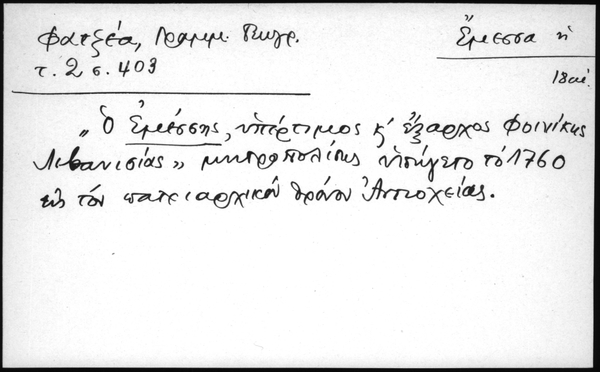 Φατζέα, Γραμμ. Γεωγρ.
τ. 2 σ. 403
Ἔμεσσα ἡ
18 αἰ.
„ Ὁ Ἐμέσσης, ὑπέρτιμος κ' ἔξαρχος Φοινίκης
Λιβανισίας „ μητροπολίτης ὑπήγετο τὸ 1760
εἰς τὸν πατριαρχικὸν θρόνον Ἀντιοχείας.